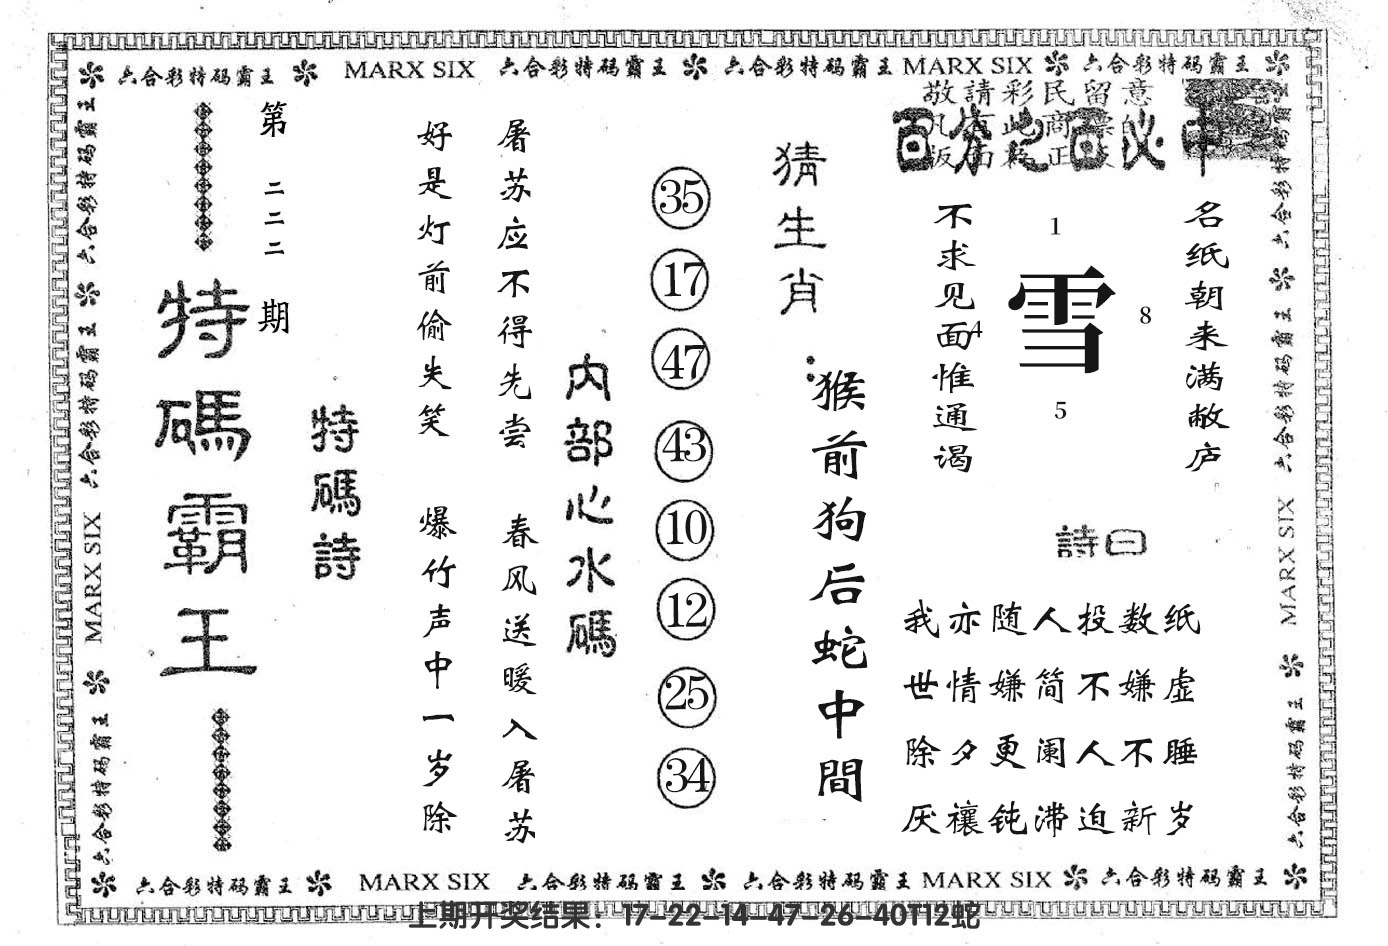 六合彩特码霸王 MARX SIX 六合彩特码霸王 六合彩特码霸王 MARX SIX 六合彩特码霸王
敬請彩民留意
百分之百必中
名纸朝来满敝庐
不求见面惟通谒
1
雪
4
8
5
詩曰
我亦随人投数纸
世情嫌简不嫌虚
除夕更阑人不睡
厌禳钝滞迫新岁
猜生肖：
猴前狗后蛇中間
35
17
47
43
10
12
25
34
内部心水碼
屠苏应不得先尝 春风送暖入屠苏
好是灯前偷失笑 爆竹声中一岁除
特碼詩
第二二二期
特碼霸王
六合彩特码霸王 六合彩特码霸王 MARX SIX 六合彩特码霸王
六合彩特码霸王 六合彩特码霸王 MARX SIX 六合彩特码霸王
六合彩特码霸王 MARX SIX 六合彩特码霸王 六合彩特码霸王 MARX SIX 六合彩特码霸王
上期开奖结果：17-22-14-47-26-40T12蛇